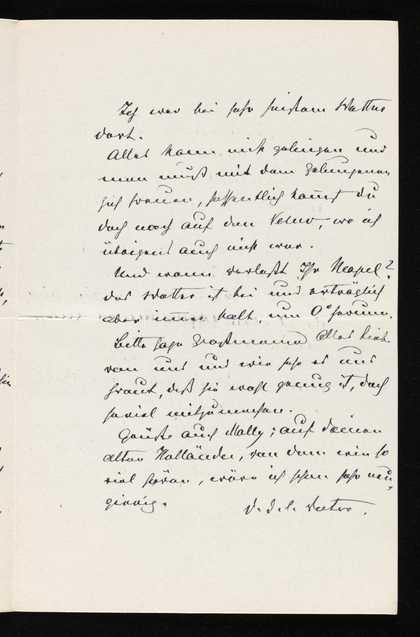 Ich war bei sehr heißem Wetter
dort.
Alles kann nicht gelingen und
man muß mit dem Gelungenen
sich freuen, hoffentlich kommst du
doch noch auf den Vesuv, wo ich
übrigens auch nicht war.
Und wann verlaßt Ihr Neapel?
das Wetter ist bei uns erträglich
aber immer kalt, um 0° herum.
Bitte sage Alles Lieb.
von uns und wie sehr es uns
freut, daß sie wohl genug ist, doch
so viel mitzumachen.
Grüße auch Molly; auf deinen
alten Holländer, von dem wir so
viel hören, wäre ich schon sehr neu-
gierig.